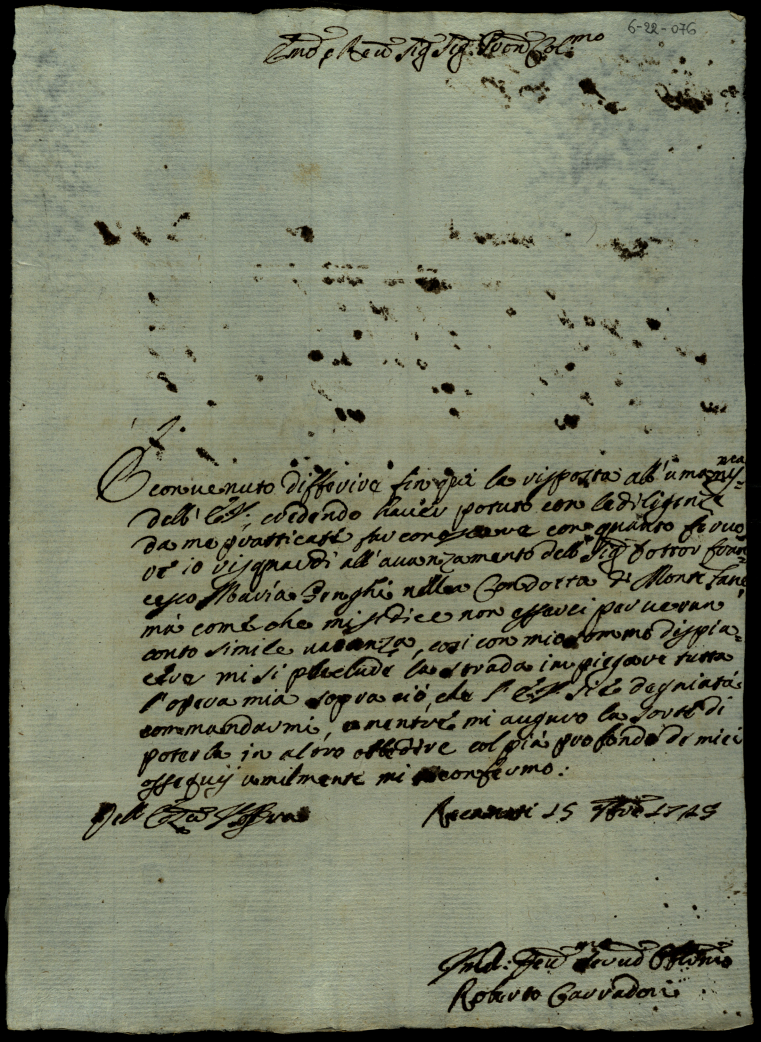 6-22-076
Em̃o e Reũ Sig Sig: Pron Col.mo
È convenuto differire fin qui la risposta all'umanma
dell' E V, credendo haver potuto con le diligenze
da me pratticate far conoscere con quanto fervo
re io risguardi all'avanzamento del Sig Dottor Fran
cesco Maria Benghi nella Condotta di Monte Fano
mà come che mi si dice non esserci per verun
conto simile vacanza, così con mio sommo dispia-
cere mi si preclude la strada in piegare tutta
l'opera mia sopra ciò, che l' E V si è degniata
commandarmi, e mentre mi auguro la sorte di
poterla in altro obbedire col più profondo de miei
ossequij umilmente mi confermo:
Dell' Em̃a Vostra
Recanati 15
Roberto Carradori